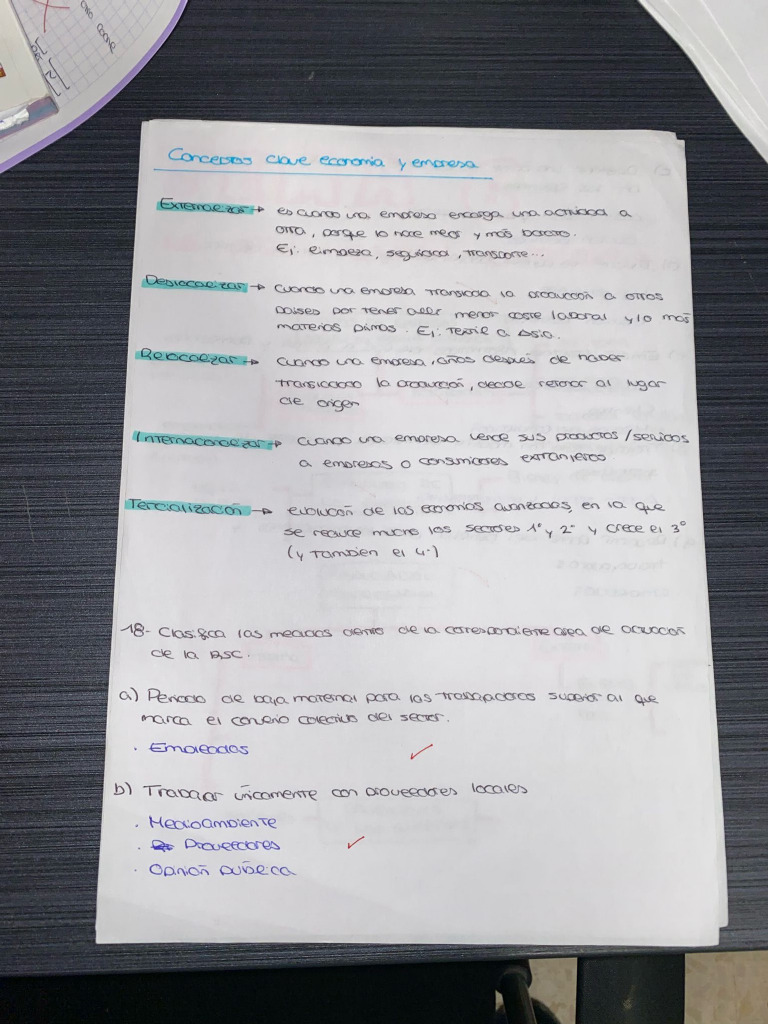 otro coche
Conceptos clave economia y empresa
Externalizar → es cuando una empresa encarga una actividad a
otra, porque lo hace mejor y más barato.
Ej: limpieza, seguridad, transporte...
Deslocalizar → cuando una empresa translada la producción a otros
paises por tener allí menor coste laboral y/o más
materias primas. Ej: textil a Asia.
Relocalizar → cuando una empresa, años después de haber
translado la producción, decide retornar al lugar
de origen
Internacionalizar → cuando una empresa vende sus productos/servicios
a empresas o consumidores extranjeros
Tercialización → evolución de las economías avanzadas, en la que
se reduce mucho los sectores 1º y 2º y crece el 3º
(y tambien el 4º)
18- Clasifica las medidas dentro de la correspondiente área de actuación
de la RSC.
a) Periodo de baja maternal para las trabajadoras superior al que
marca el convenio colectivo del sector.
· Empleados
b) Trabajar únicamente con proveedores locales
· Medioambiente
· Proveedores
· Opinión pública